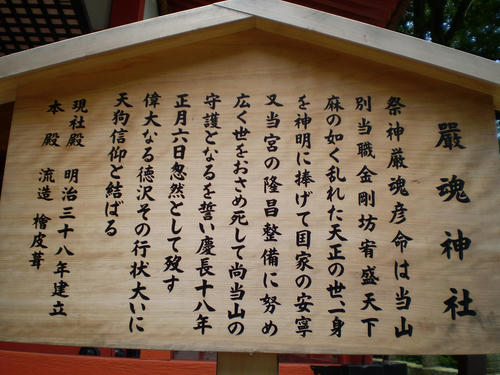 嚴魂神社
祭神厳魂彦命は当山
別当職金剛坊宥盛天下
麻の如く乱れた天正の世、一身
を神明に捧げて国家の安寧
又当宮の隆昌整備に努め
広く世をおさめ死して尚当山の
守護となるを誓い慶長十八年
正月六日忽然として歿す
偉大なる徳沢その行状大いに
天狗信仰と結ばる
現社殿 明治三十八年建立
本殿 流造 檜皮葺